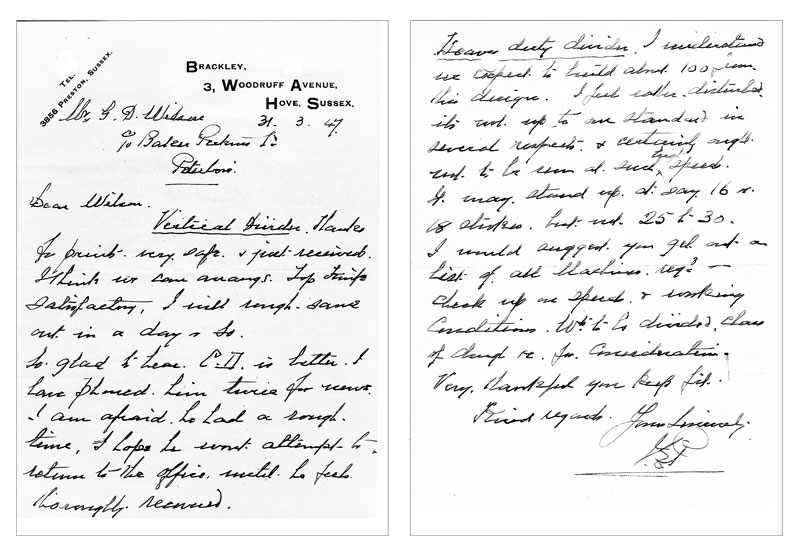 TEL.
3856 PRESTON, SUSSEX.
BRACKLEY,
3, WOODRUFF AVENUE,
HOVE, SUSSEX.
Mr. G. D. Wilson 31. 3. 47.
c/o Baker Perkins Ld
Peterboro.
Dear Wilson.
Vertical Divider. Thanks
for prints very safe. & just received.
I think we can arrange. Top
satisfactory, I will rough. same
out in a day or so.
So glad to hear. is better. I
have phoned. him twice for news.
I am afraid. he had a rough.
time, I hope he wont attempt to
return to the office. until. he feels
thoroughly recovered.
Heavy duty divider. I understand
we expect to build about 100 from
this design. I feel rather disturbed.
its not. up to our standard in
several respects. & certainly ought
not. to be run at. such high speed.
It may. stand up. at say 16 or
18 strokes. but. not. 25 to 30.
I would suggest. you get out a
list. of all Machines. reqd —
check up on speeds. & working
Conditions. Wts to be divided, Class
of dough etc. for. Consideration.
Very. thankful you keep fit.
Kind regards. Yours Sincerely.